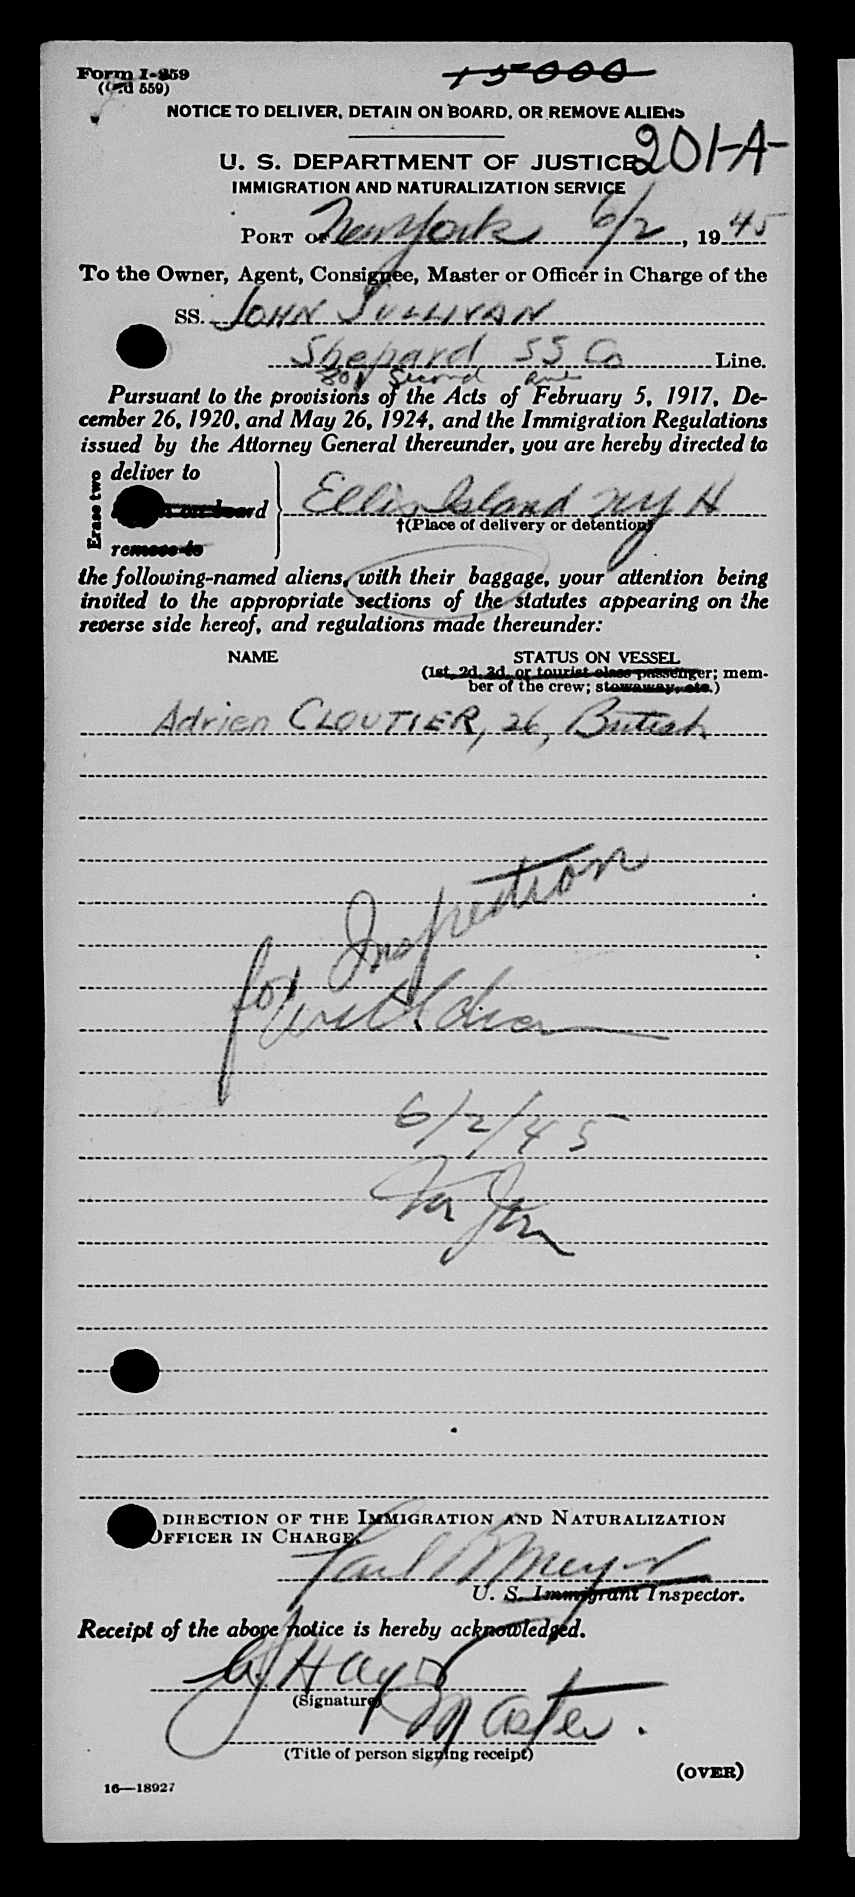 Form I-259
(Old 559)
15000
NOTICE TO DELIVER, DETAIN ON BOARD, OR REMOVE ALIENS
U. S. DEPARTMENT OF JUSTICE
201-A-
IMMIGRATION AND NATURALIZATION SERVICE
PORT OF New York 6/2, 1945
To the Owner, Agent, Consignee, Master or Officer in Charge of the
SS. JOHN SULLIVAN
Shepard SS Co Line.
Second
Pursuant to the provisions of the Acts of February 5, 1917, De-
cember 26, 1920, and May 26, 1924, and the Immigration Regulations
issued by the Attorney General thereunder, you are hereby directed to
Erase two
deliver to
on board
remove to
Ellis Island NY H
†(Place of delivery or detention)
the following-named aliens, with their baggage, your attention being
invited to the appropriate sections of the statutes appearing on the
reverse side hereof, and regulations made thereunder:
NAME STATUS ON VESSEL
(1st, 2d, 3d, or tourist class passenger; mem-
ber of the crew; stowaway, etc.)
Adrien CLOUTIER, 26, British
for Inspection
6/2/45
DIRECTION OF THE IMMIGRATION AND NATURALIZATION
OFFICER IN CHARGE.
Paul
U. S. Immigrant Inspector.
Receipt of the above notice is hereby acknowledged.
(Signature)
Master.
(Title of person signing receipt)
(OVER)
16—18927